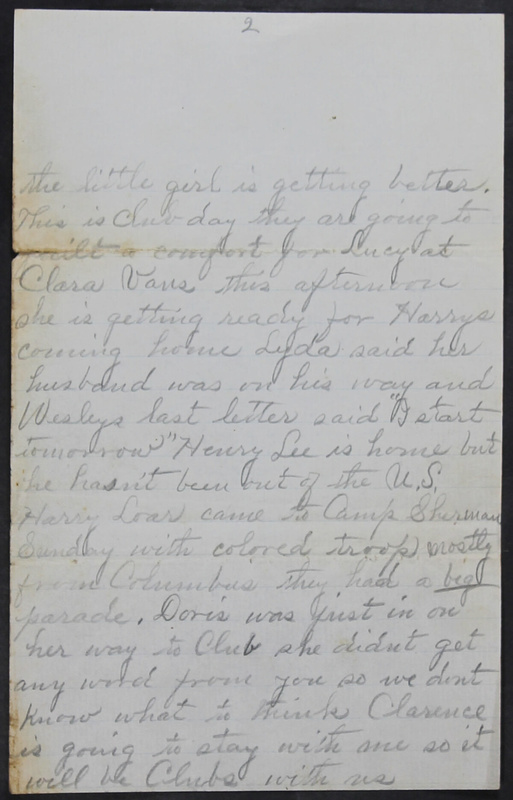 2
the little girl is getting better.
This is Club day they are going to
quilt a comfort for Lucy at
Clara Vans this afternoon
she is getting ready for Harrys
coming home Lyda said her
husband was on his way and
Wesleys last letter said "I start
tomorrow" Henry Lee is home but
he hasn't been out of the U.S.
Harry Loar came to Camp Sherman
Sunday with colored troops mostly
from Columbus they had a big
parade. Doris was just in on
her way to Club she didnt get
any word from you so we dont
know what to think Clarence
is going to stay with me so it
will be Clubs with us